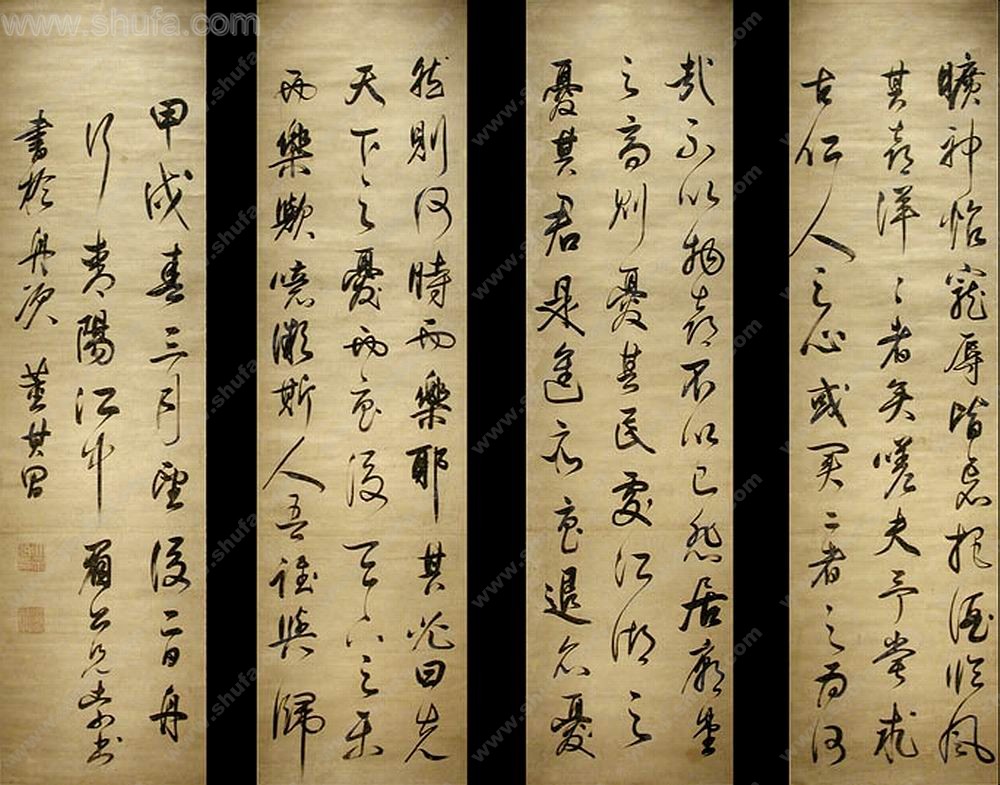 www.shufa.com
曠神怡寵辱皆忘把酒臨風
其喜洋々者矣嗟夫予嘗求
古仁人之心或異二者之為何
哉不以物喜不以己悲居廟堂
之高則憂其民處江湖之
憂其君是進亦憂退亦憂
然則何時而樂耶其必曰先
天下之憂而憂後天下之樂
而樂歟噫微斯人吾誰與歸
甲戌春三月望後二日舟
行陽江中眉公兄索書
書於舟次 董其昌